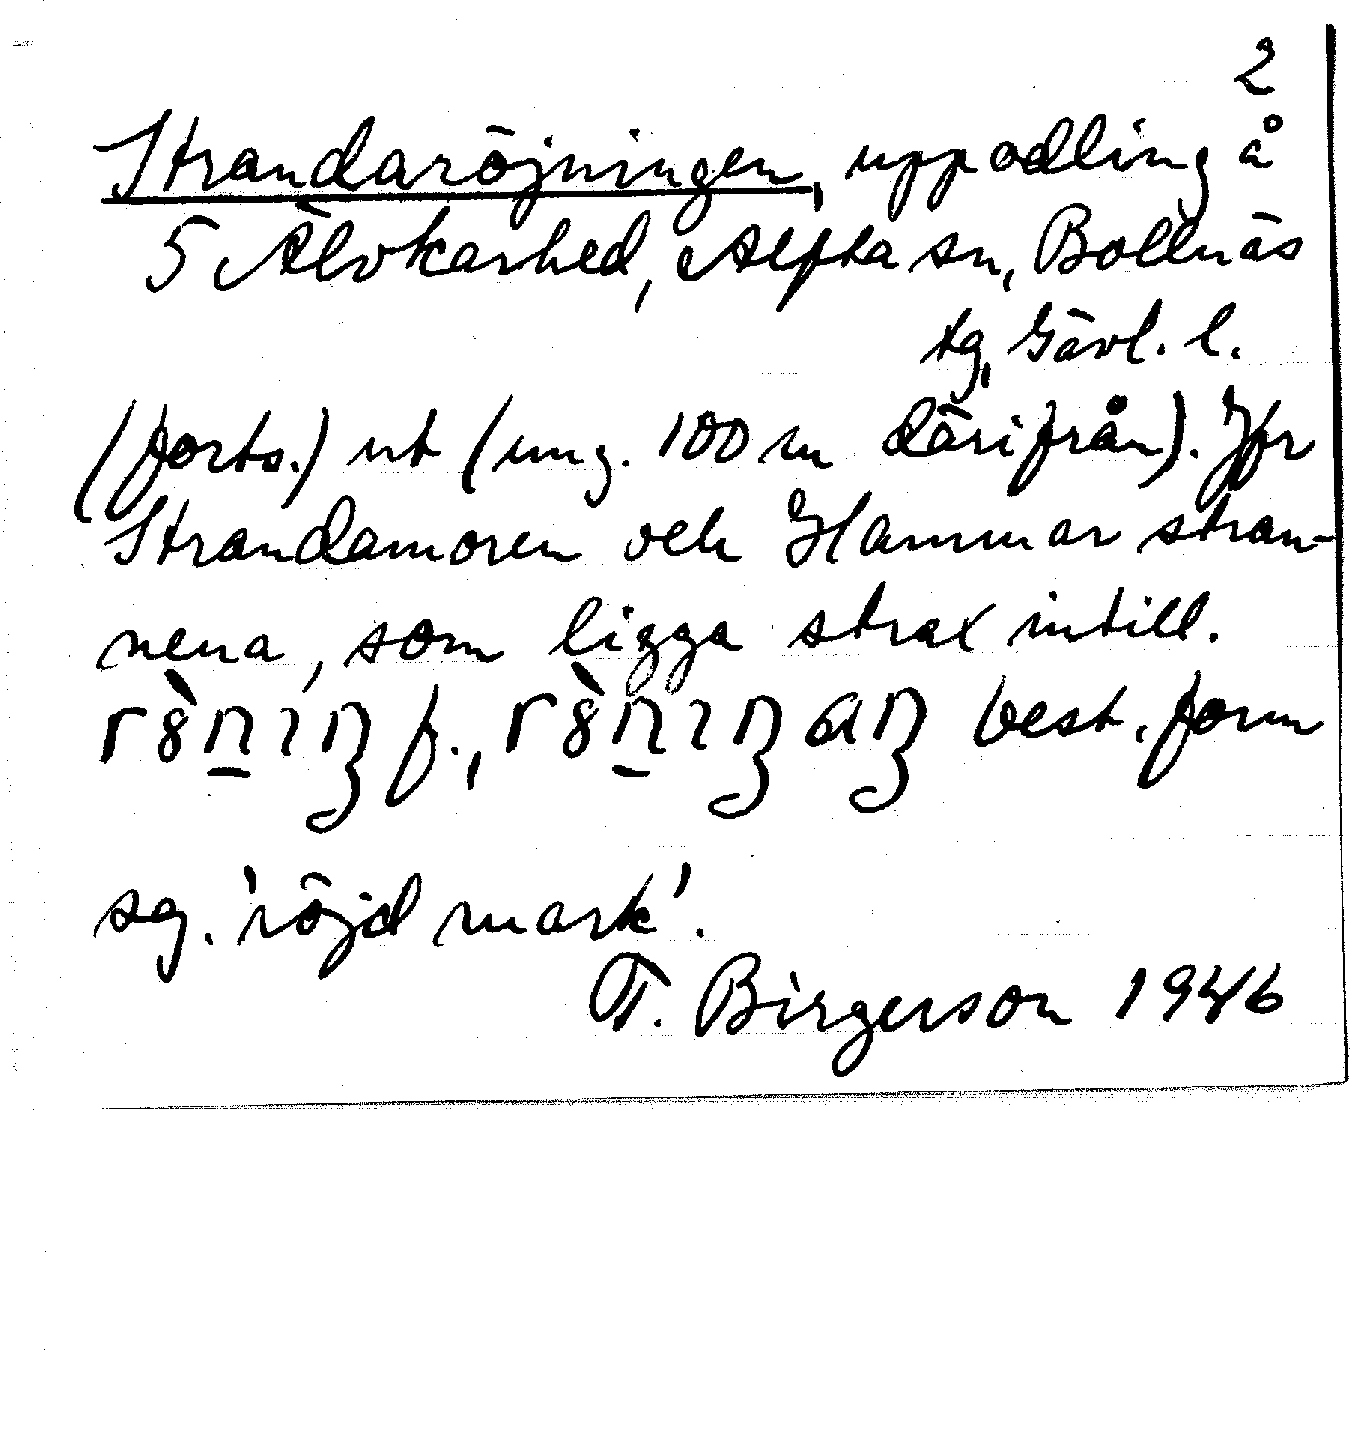 2
Strandaröjningen, uppodling å
5 Älvkarhed, Alfta sn, Bollnäs
tg, Gävl. l.
(forts.) ut (ung. 100 m därifrån). Jfr
Strandamoren och Hammarstran-
nena, som ligga strax intill.
f., best. form
sg. 'röjd mark'.
T. Birgerson 1946